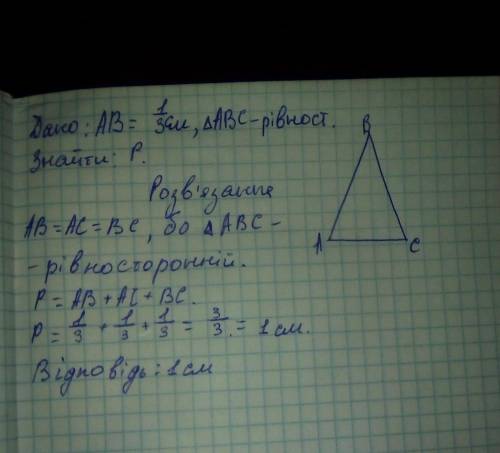 Дано: AB = 1/3 см, △ABC – рівност.
Знайти: P.
Розв'язання
AB = AC = BC, бо △ABC –
– рівносторонній.
P = AB + AC + BC.
P = 1/3 + 1/3 + 1/3 = 3/3 = 1 см.
Відповідь: 1 см
B
A
C